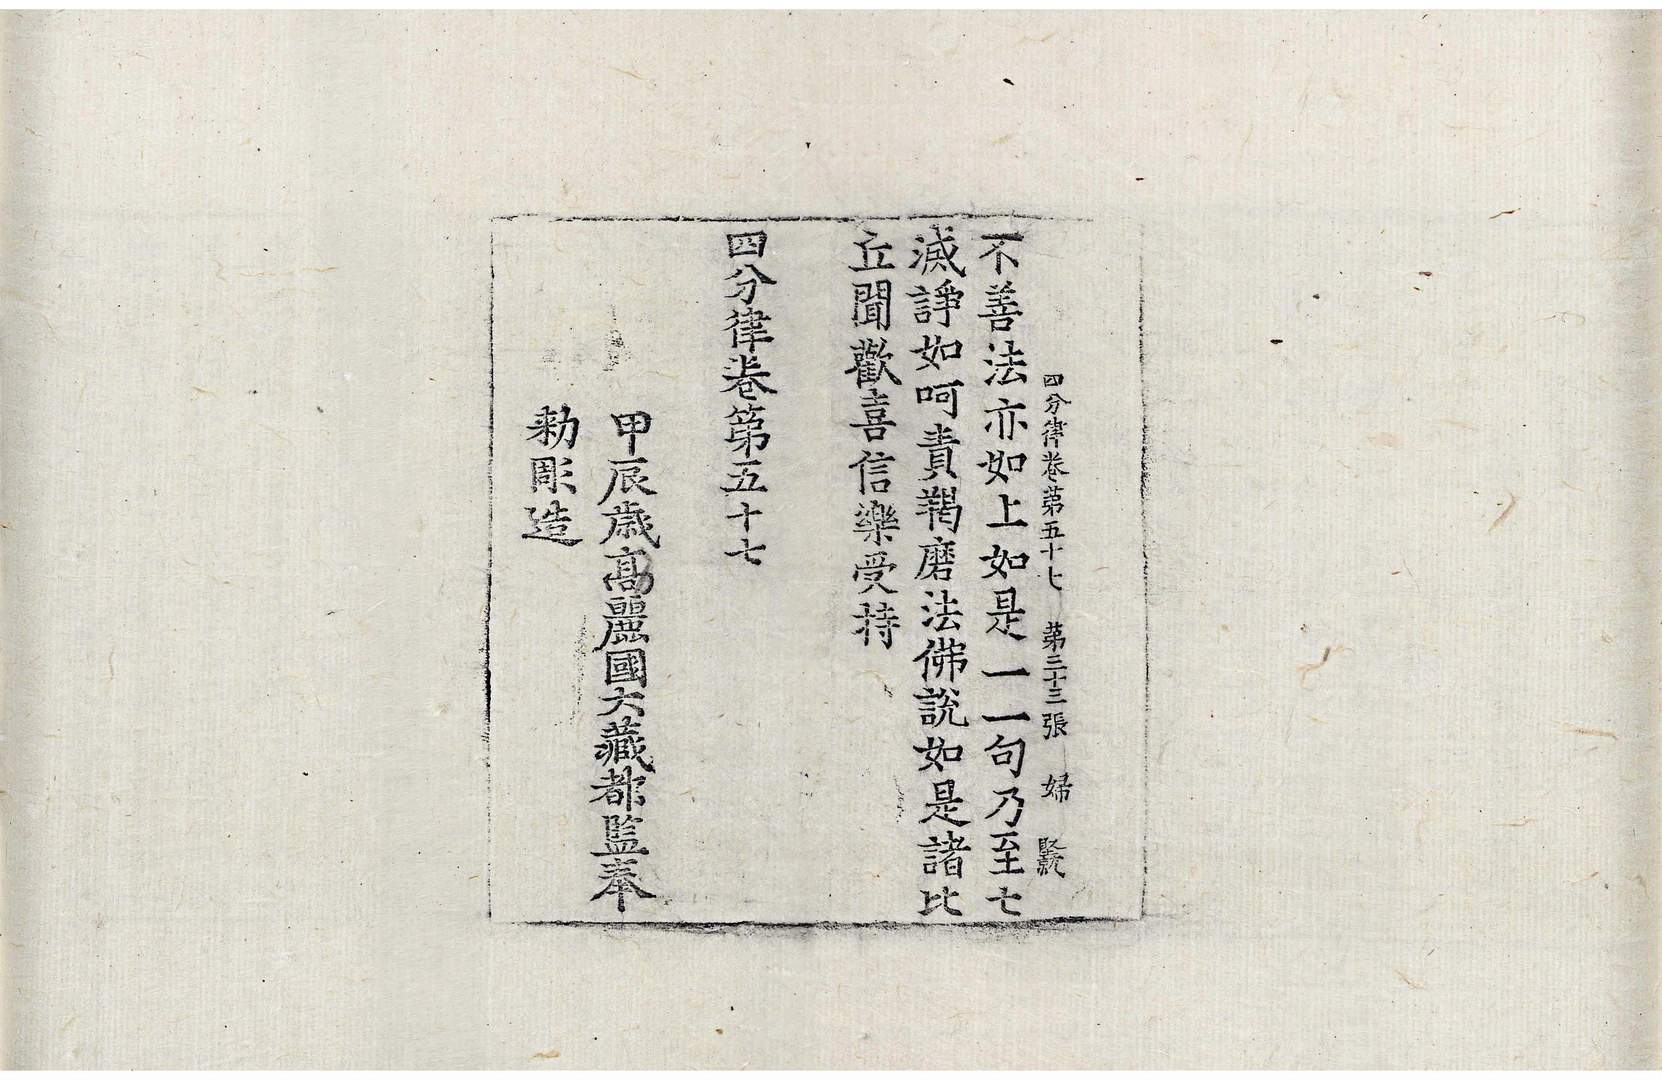 四分律卷第五十七 第三十三張 婦
不善法亦如上如是一一句乃至七
滅諍如呵責羯磨法佛說如是諸比
丘聞歡喜信樂受持
四分律卷第五十七
甲辰歲高麗國大藏都監奉
勅彫造